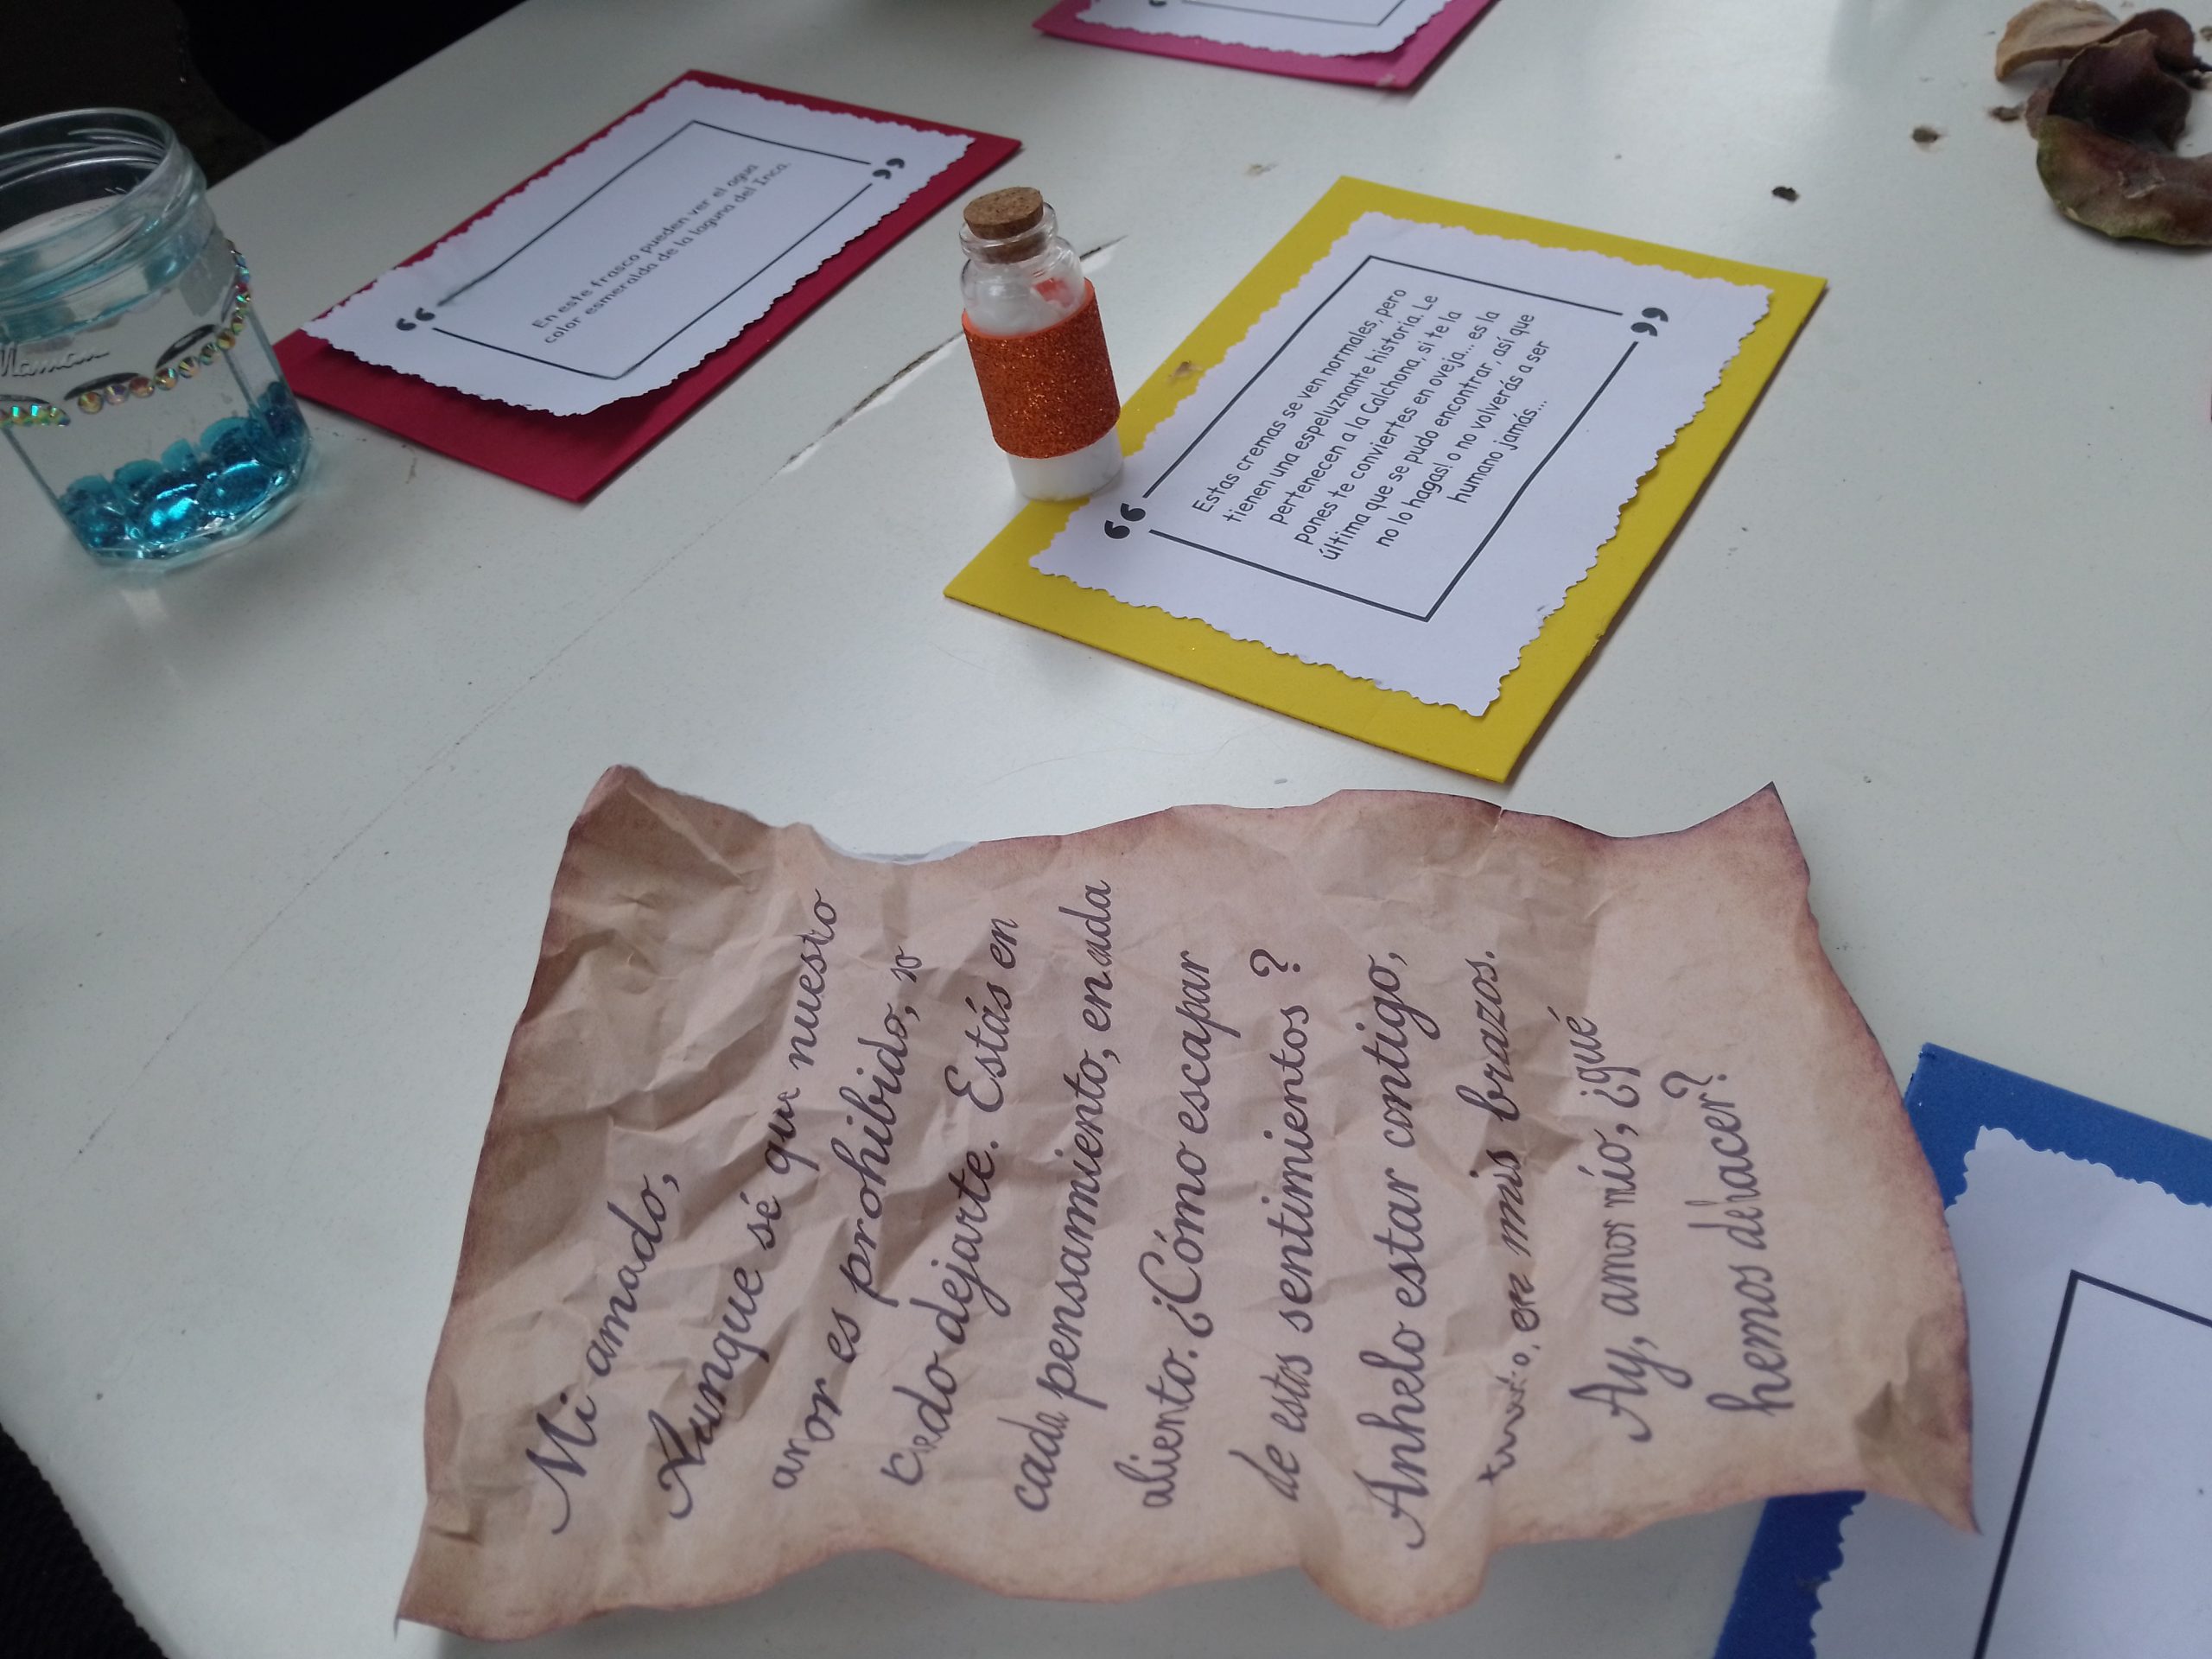 En este frasco pueden ver el agua
color esmeralda de la laguna del Inca.
Estas cremas se ven normales, pero
tienen una espeluznante historia. Le
pertenecen a la Calchona, si te la
pones te conviertes en oveja... es la
última que se pudo encontrar, así que
no lo hagas! o no volverás a ser
humano jamás...
Mi amado,
Aunque sé que nuestro
amor es prohibido, no
dejarte. Estás en
cada pensamiento, en cada
aliento. ¿Cómo escapar
de estos sentimientos ?
Anhelo estar contigo,
en mis brazos.
Ay, amor mío, ¿qué
hemos dehacer?